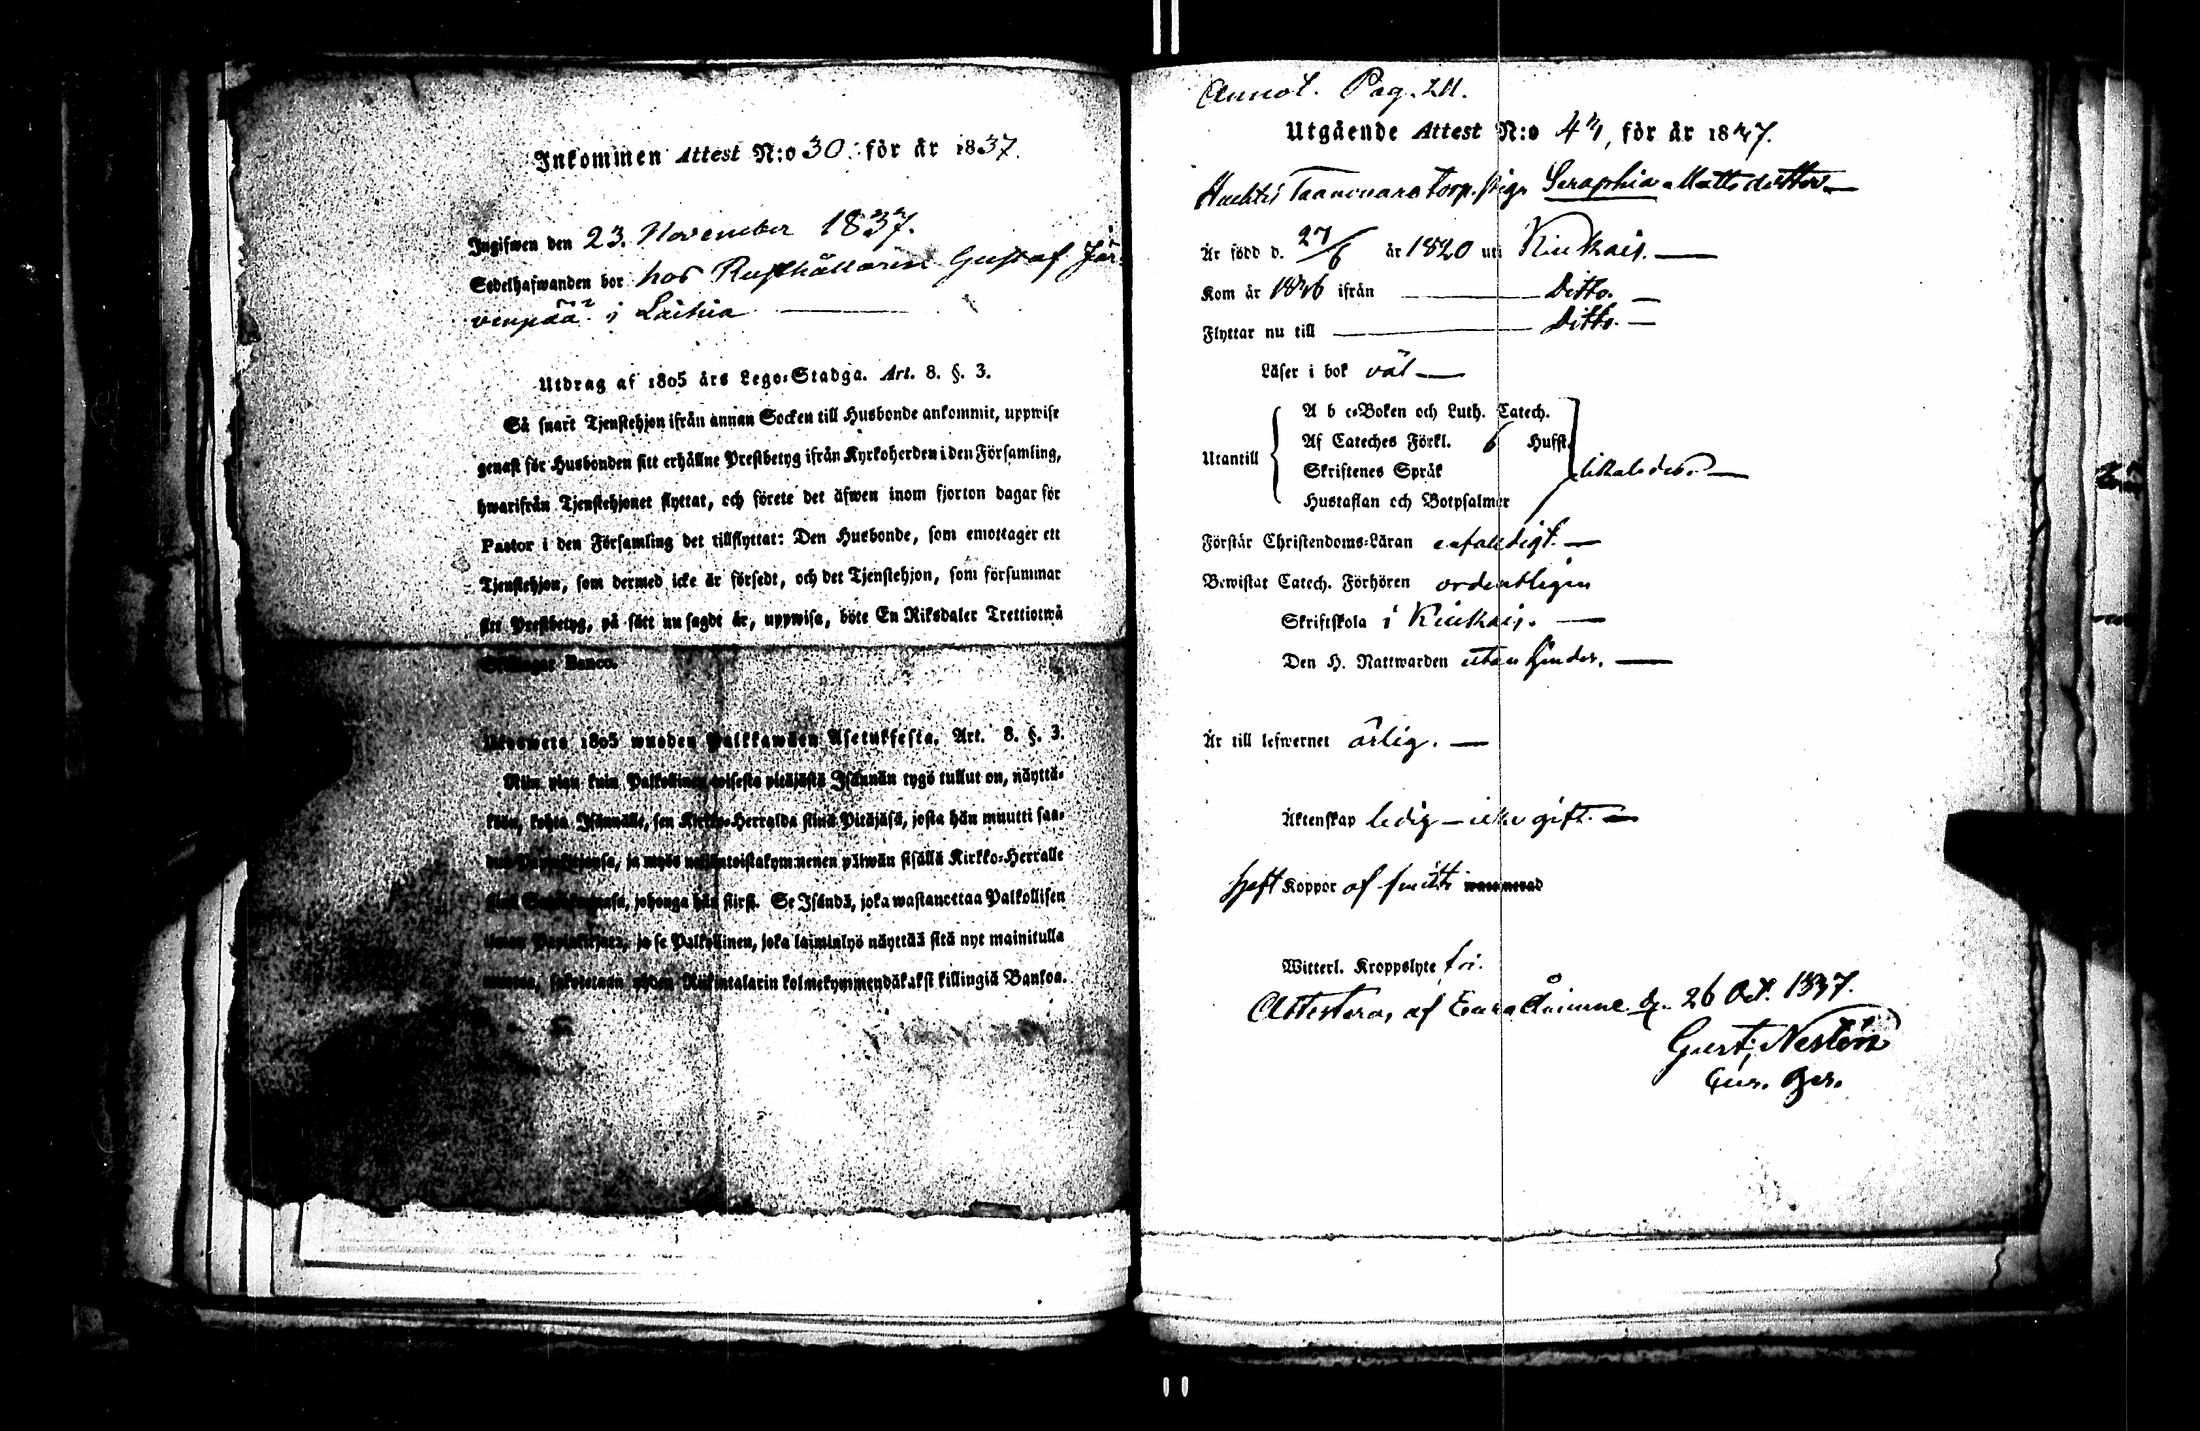 Inkommen Attest N:o 30 för år 1837.
Ingifwen den 23. November 1837.
Sedelhafwanden bor hos Rusthållaren Gustaf Jär-
venpää i Laihia
Utdrag af 1805 års Lego-Stadga. Art. 8. §. 3.
Så snart Tjenstehjon ifrån annan Socken till Husbonde ankommit, uppwise
genast för Husbonden sitt erhållne Prestbetyg ifrån Kyrkoherden i den Församling,
hwarifrån Tjenstehjonet flyttat, och förete det äfwen inom fjorton dagar för
Pastor i den Församling det tillflyttat: Den Husbonde, som emottager ett
Tjenstehjon, som dermed icke är försedt, och det Tjenstehjon, som försummar
sitt Prestbetyg, på sätt nu sagdt är, uppwisa, böte En Riksdaler Trettiotwå
Skillingar Banco.
1805 wuoden Palkkawäen Asetuksesta. Art. 8. §. 3.
Niin pian kuin Palkollinen toisesta pitäjästä Isännän tygö tullut on, näyttä-
kään, kohta Isännälle, sen Kirkko-Herralda siinä Pitäjäsä, josta hän muutti saa-
dun ja myös neljäntoistakymmenen päiwän sisällä Kirkko-Herralle
siinä johonga hän siirsi. Se Isändä, joka wastanottaa Palkollisen
ilman ja se Palkollinen, joka laiminlyö näyttää sitä nyt mainitulla
muotoa, sakotetaan yhden Riikintalarin kolmekymmendäkaksi killingiä Bankoa.
Annot. Pag. 211.
Utgående Attest N:o 43, för år 1837.
Torp. pig. Seraphia Matts dotter
Är född d. 27/6 år 1820 uti Kiukais.
Kom år 1836 ifrån Ditto.
Flyttar nu till Ditto.
Läser i bok väl
Utantill
A b c-Boken och Luth. Catech.
Af Cateches Förkl. 6 Hufst.
Skriftenes Språk
Hustaflan och Botpsalmer
likaledes.
Förstår Christendoms-Läran enfaldigt.
Bewistat Catech. Förhören ordentligen
Skriftskola i Kiukais.
Den H. Nattwarden utan hinder.
Är till lefwernet ärlig.
Äktenskap ledig – icke gift.
haft Koppor af smitta waccinerad
Witterl. Kroppslyte fri.
Attesterar, af Eura Åminne d. 26 Oct. 1837.
Gust. Neslén